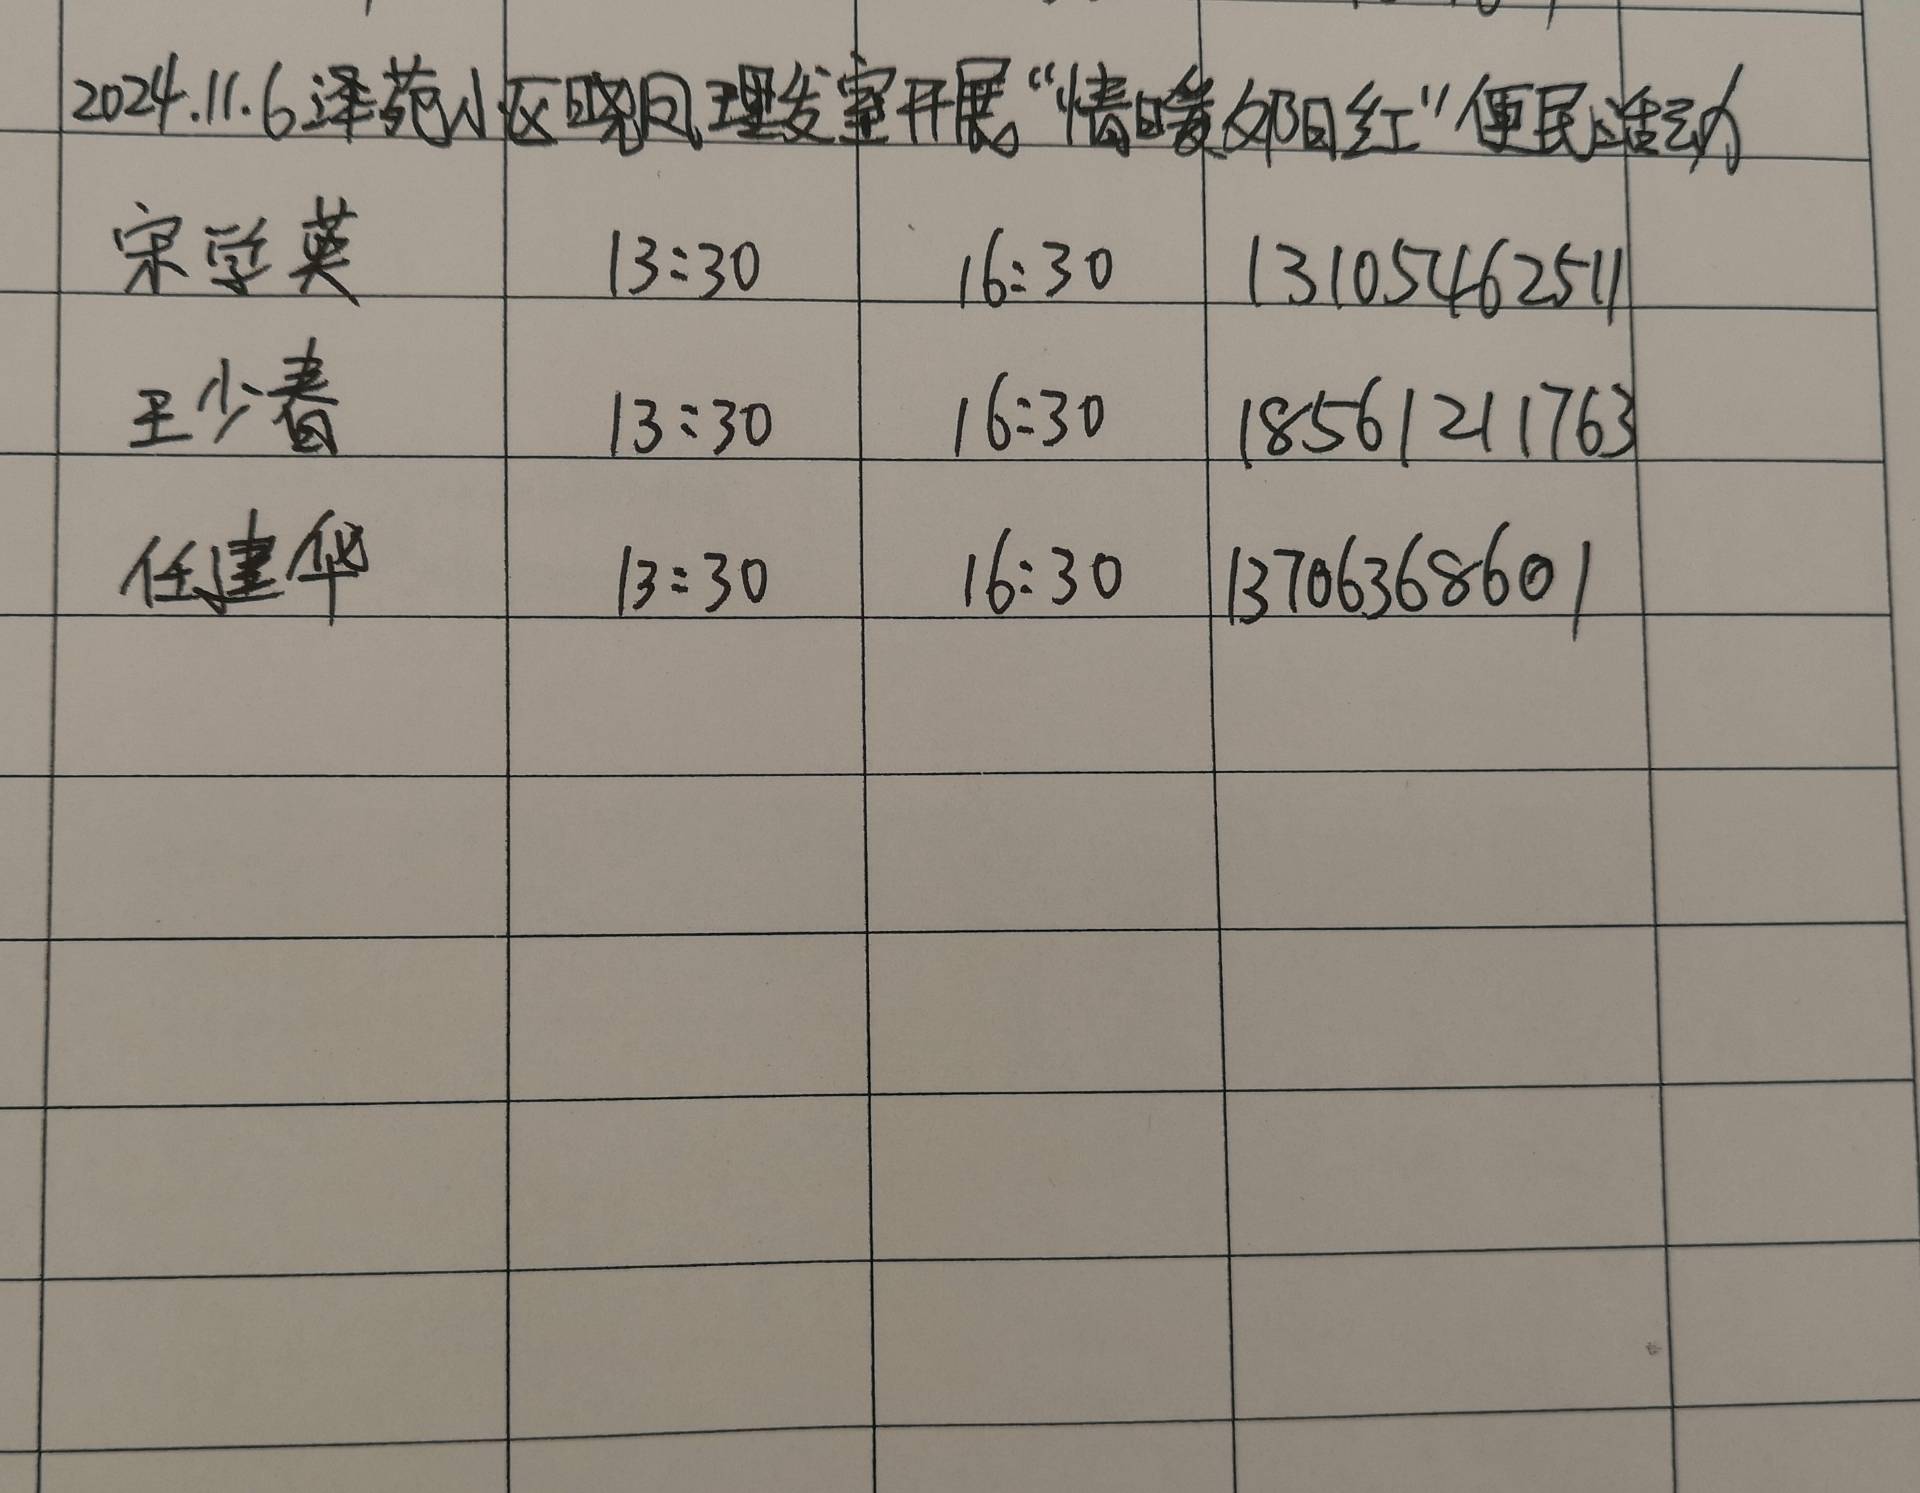 2024.11.6泽苑小区晓风理发室开展“情暖夕阳红”便民活动
宋学英 13:30 16:30 13105462511
王少春 13:30 16:30 18561211763
任建华 13:30 16:30 13706368601